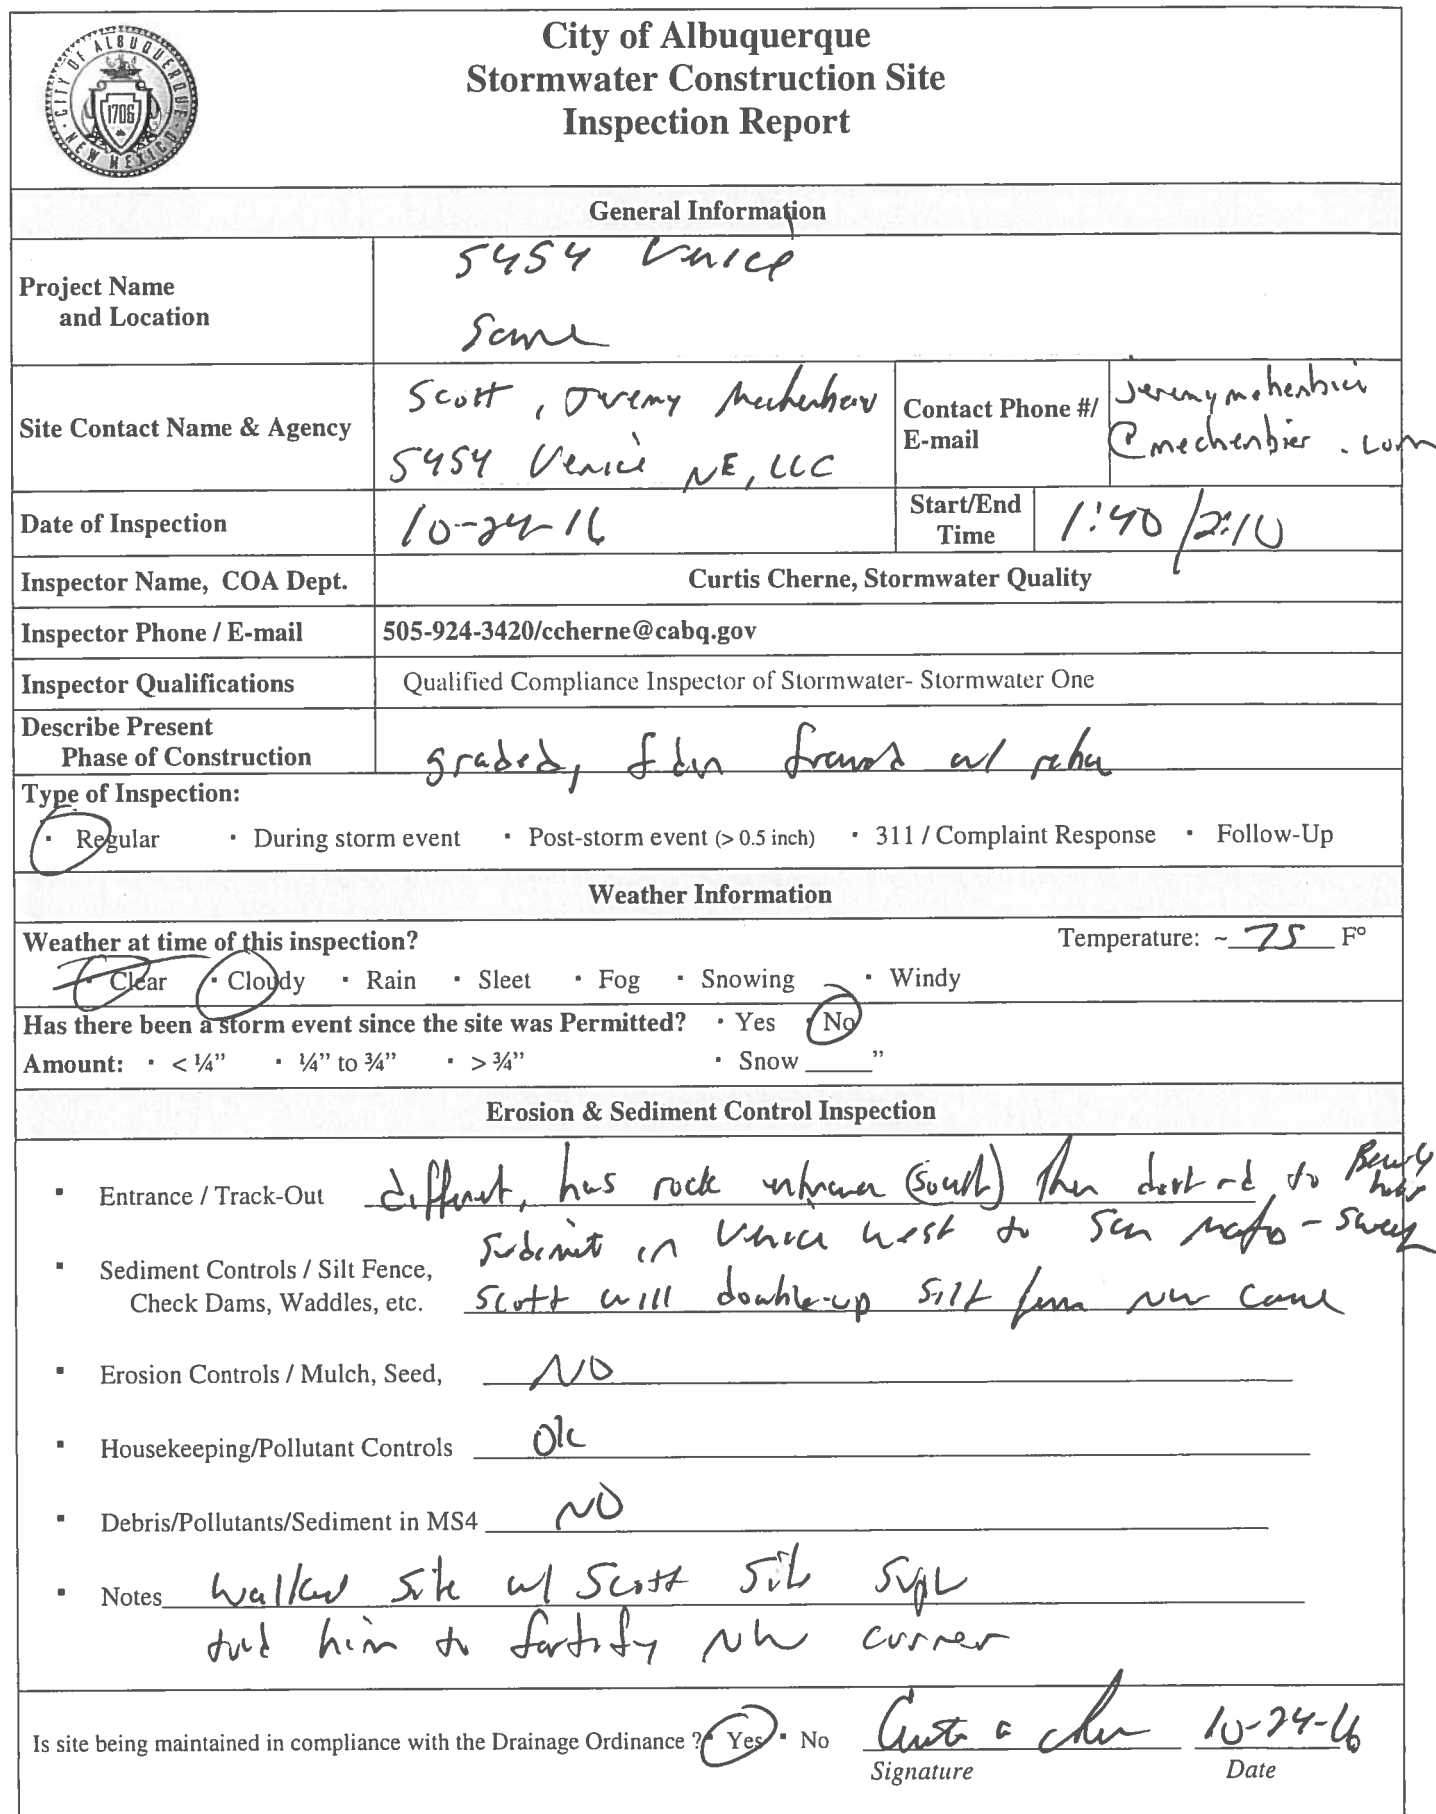 CITY OF ALBUQUERQUE
NEW MEXICO
1706
City of Albuquerque
Stormwater Construction Site
Inspection Report
General Information
Project Name
and Location
5454 Venice
Same
Site Contact Name & Agency
Scott, Jeremy
5454 Venice NE, LLC
Contact Phone #/
E-mail
@mechenbier.com
Date of Inspection
10-24-16
Start/End
Time
1:40/2:10
Inspector Name, COA Dept.
Curtis Cherne, Stormwater Quality
Inspector Phone / E-mail
505-924-3420/ccherne@cabq.gov
Inspector Qualifications
Qualified Compliance Inspector of Stormwater- Stormwater One
Describe Present
Phase of Construction
graded, fdn framed w/ rebar
Type of Inspection:
· Regular · During storm event · Post-storm event (> 0.5 inch) · 311 / Complaint Response · Follow-Up
Weather Information
Weather at time of this inspection?
Temperature: ~ 75 F°
· Clear · Cloudy · Rain · Sleet · Fog · Snowing · Windy
Has there been a storm event since the site was Permitted? · Yes · No
Amount: · < ¼” · ¼” to ¾” · > ¾” · Snow _____”
Erosion & Sediment Control Inspection
▪ Entrance / Track-Out different, has rock entrance (south) then dirt rd to
Sediment in Venice west to San Mateo - sweep
▪ Sediment Controls / Silt Fence,
Check Dams, Waddles, etc. Scott will double-up silt fence NW corner
▪ Erosion Controls / Mulch, Seed, NO
▪ Housekeeping/Pollutant Controls Ok
▪ Debris/Pollutants/Sediment in MS4 NO
▪ Notes Walked site w/ Scott site supt
told him to fortify NW corner
Is site being maintained in compliance with the Drainage Ordinance ? · Yes · No
10-24-16
Signature
Date